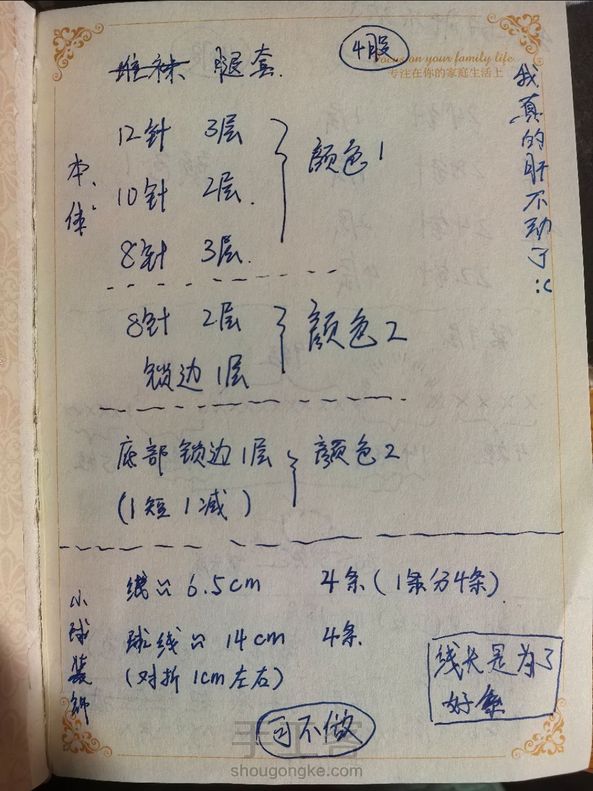 腿套
4股
Focus on your family life
专注在你的家庭生活上
我真的肝不动了:(
本体
12针 3层
10针 2层
8针 3层
颜色1
8针 2层
锁边1层
颜色2
底部锁边1层
(1短1减)
颜色2
小球装饰
线≈6.5cm 4条(1条分4条)
球线≈14cm 4条
(对折1cm左右)
线长是为了
好系
可不做
手工客
shougongke.com